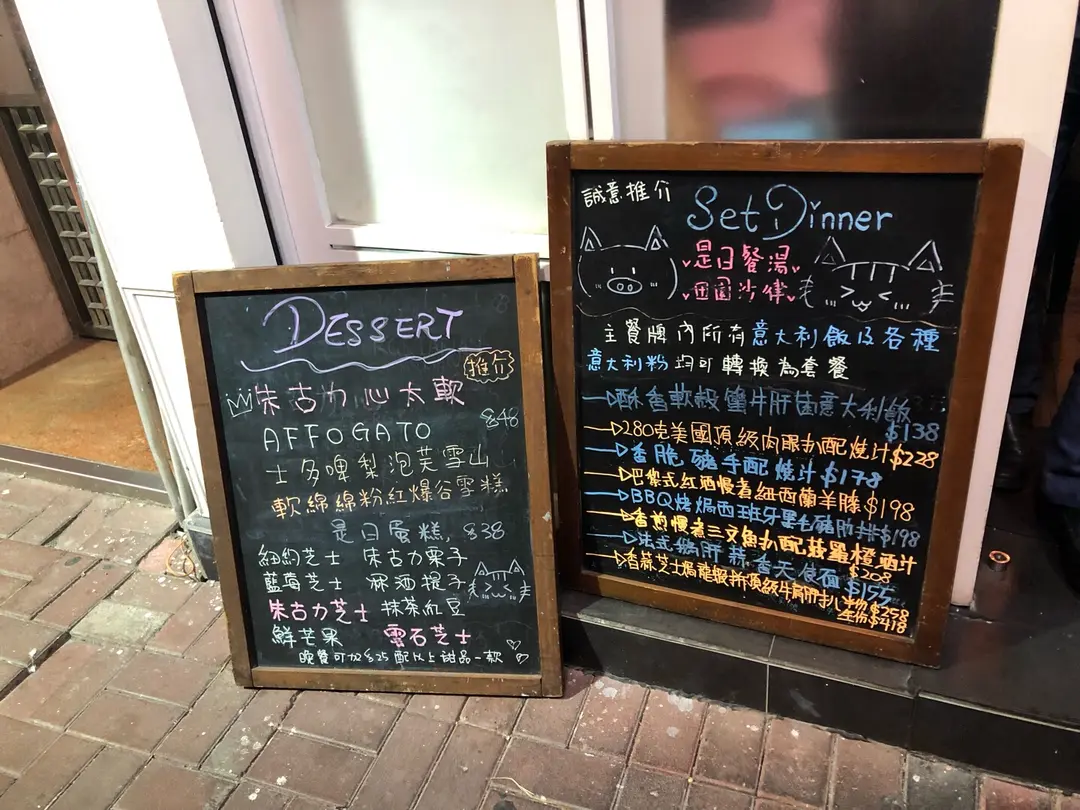 DESSERT
推介
朱古力心太軟
$48
AFFOGATO
士多啤梨泡芙雪山
軟綿綿粉紅爆谷雪糕
是日蛋糕, $38
紐約芝士 朱古力栗子
藍莓芝士 淋酒提子
朱古力芝士 抹茶紅豆
鮮芒果 雲石芝士
晚餐可加$25配以上甜品一款
誠意推介
Set Dinner
是日餐湯
田園沙律
主餐牌內所有意大利飯及各種
意大利粉均可轉換為套餐
酥香軟殼蟹牛肝菌意大利飯
$138
280克美國頂級肉眼扒配燒汁$228
香脆豬手配燒汁$178
巴黎式紅酒慢煮紐西蘭羊膝$198
BBQ燒焗西班牙黑毛豬肋排$198
香煎慢煮三文魚扒配菠蘿橙晒汁
$208
法式鴨肝蒜香天使麵$155
香蒜芝士焗龍蝦拼頂級牛肩胛扒
$258
$418